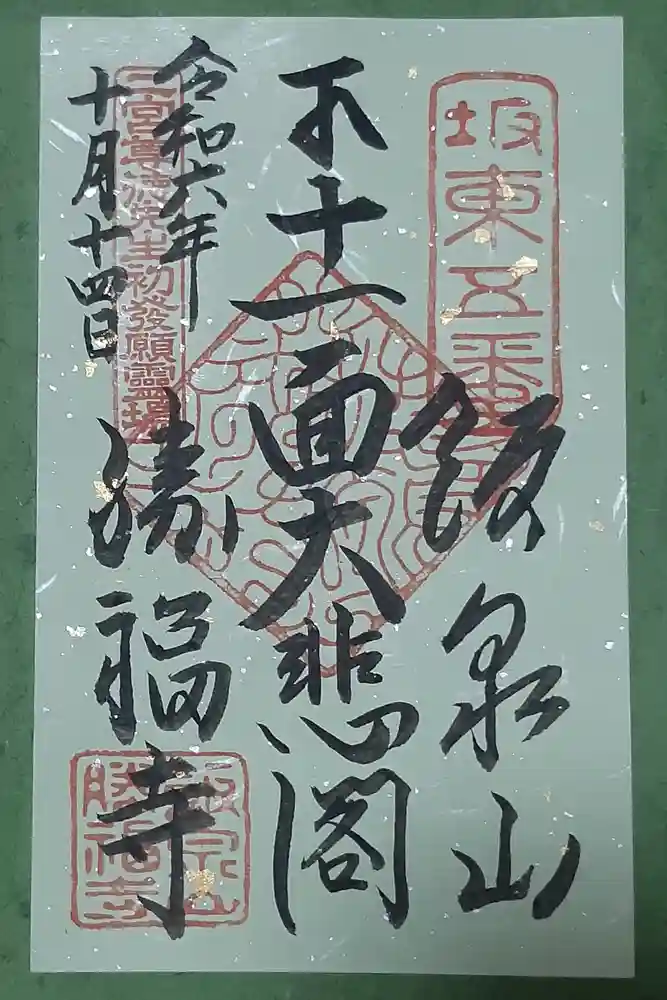 坂東五番
飯泉山
不十一面大悲閣
令和六年
十月十四日
二宮尊徳先生初發願靈場
勝福寺
飯泉山
勝福寺